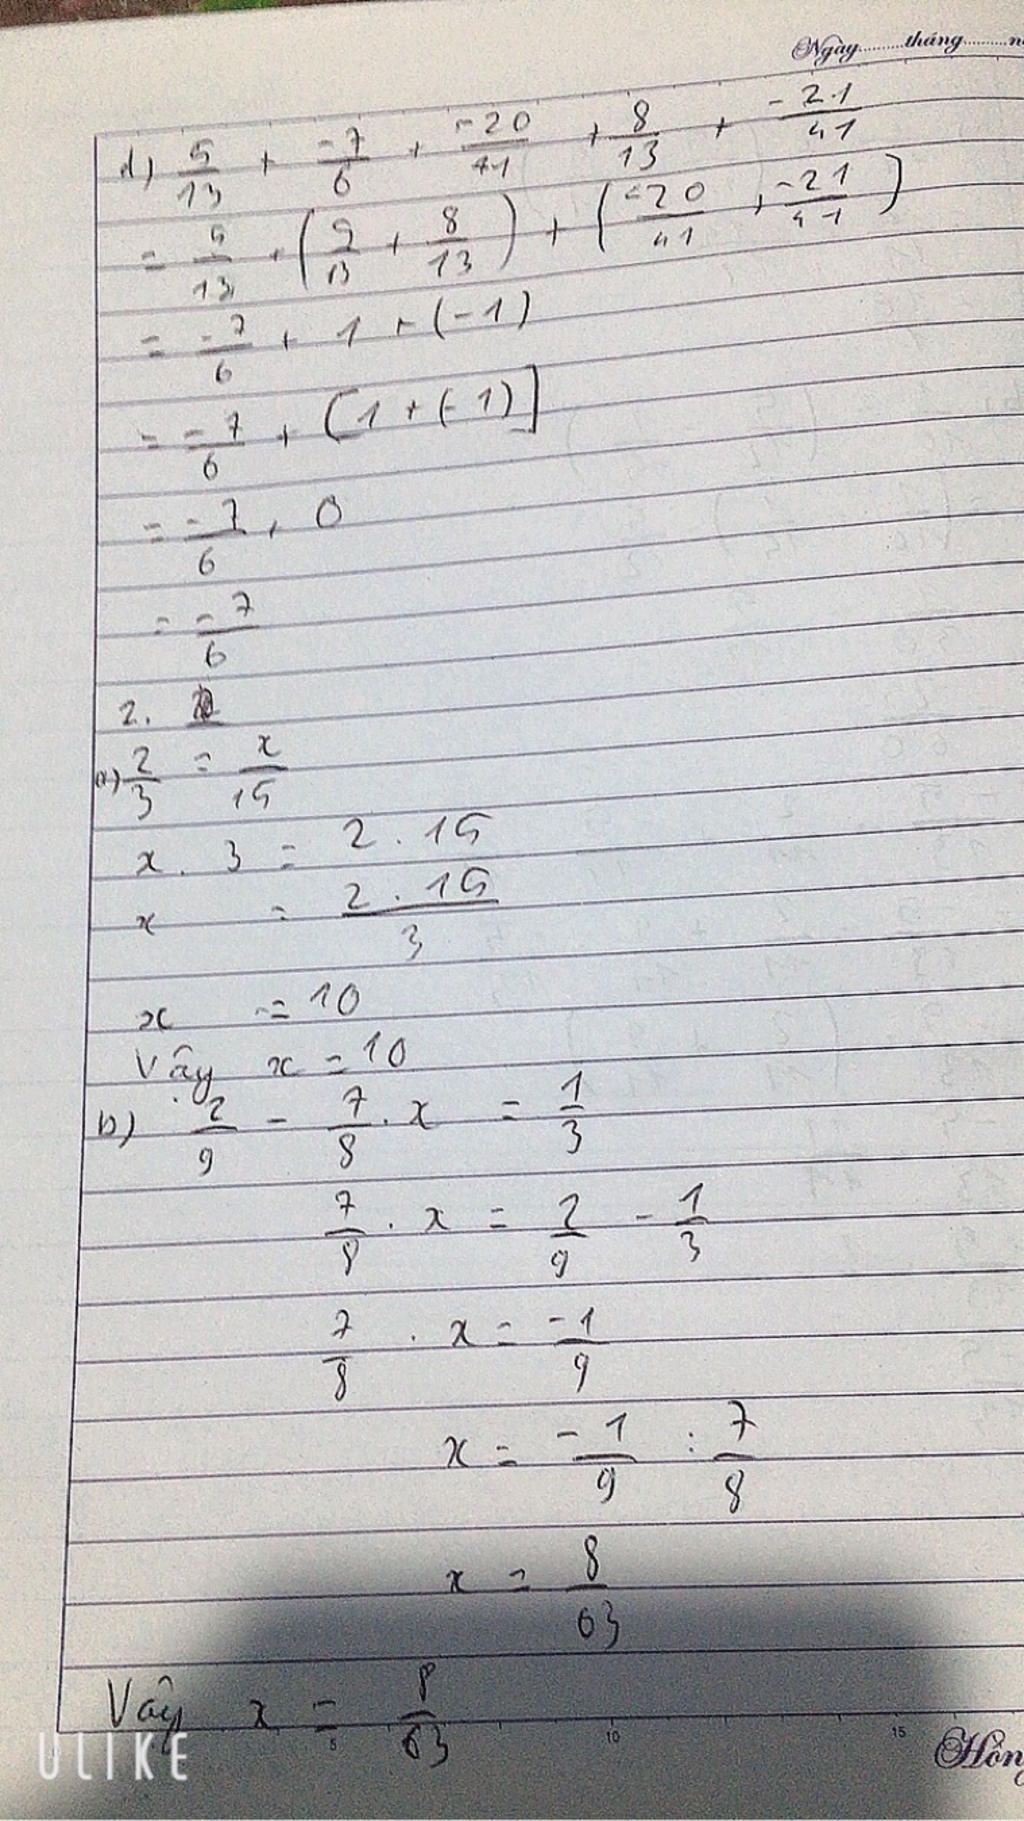 Ngày.........tháng.........n
d) 5/13 + -7/6 + -20/41 + 8/13 + -21/41
= 5/13 + (5/13 + 8/13) + (-20/41 + -21/41)
= -7/6 + 1 + (-1)
= -7/6 + [1 + (-1)]
= -7/6 + 0
= -7/6
2.
a) 2/3 = x/15
x . 3 = 2 . 15
x = 2 . 15/3
x = 10
Vậy x = 10
b) 2/9 - 7/8 . x = 1/3
7/8 . x = 2/9 - 1/3
7/8 . x = -1/9
x = -1/9 : 7/8
x = 8/63
Vậy x = 8/63
5 10 15
ULIKE Hồng